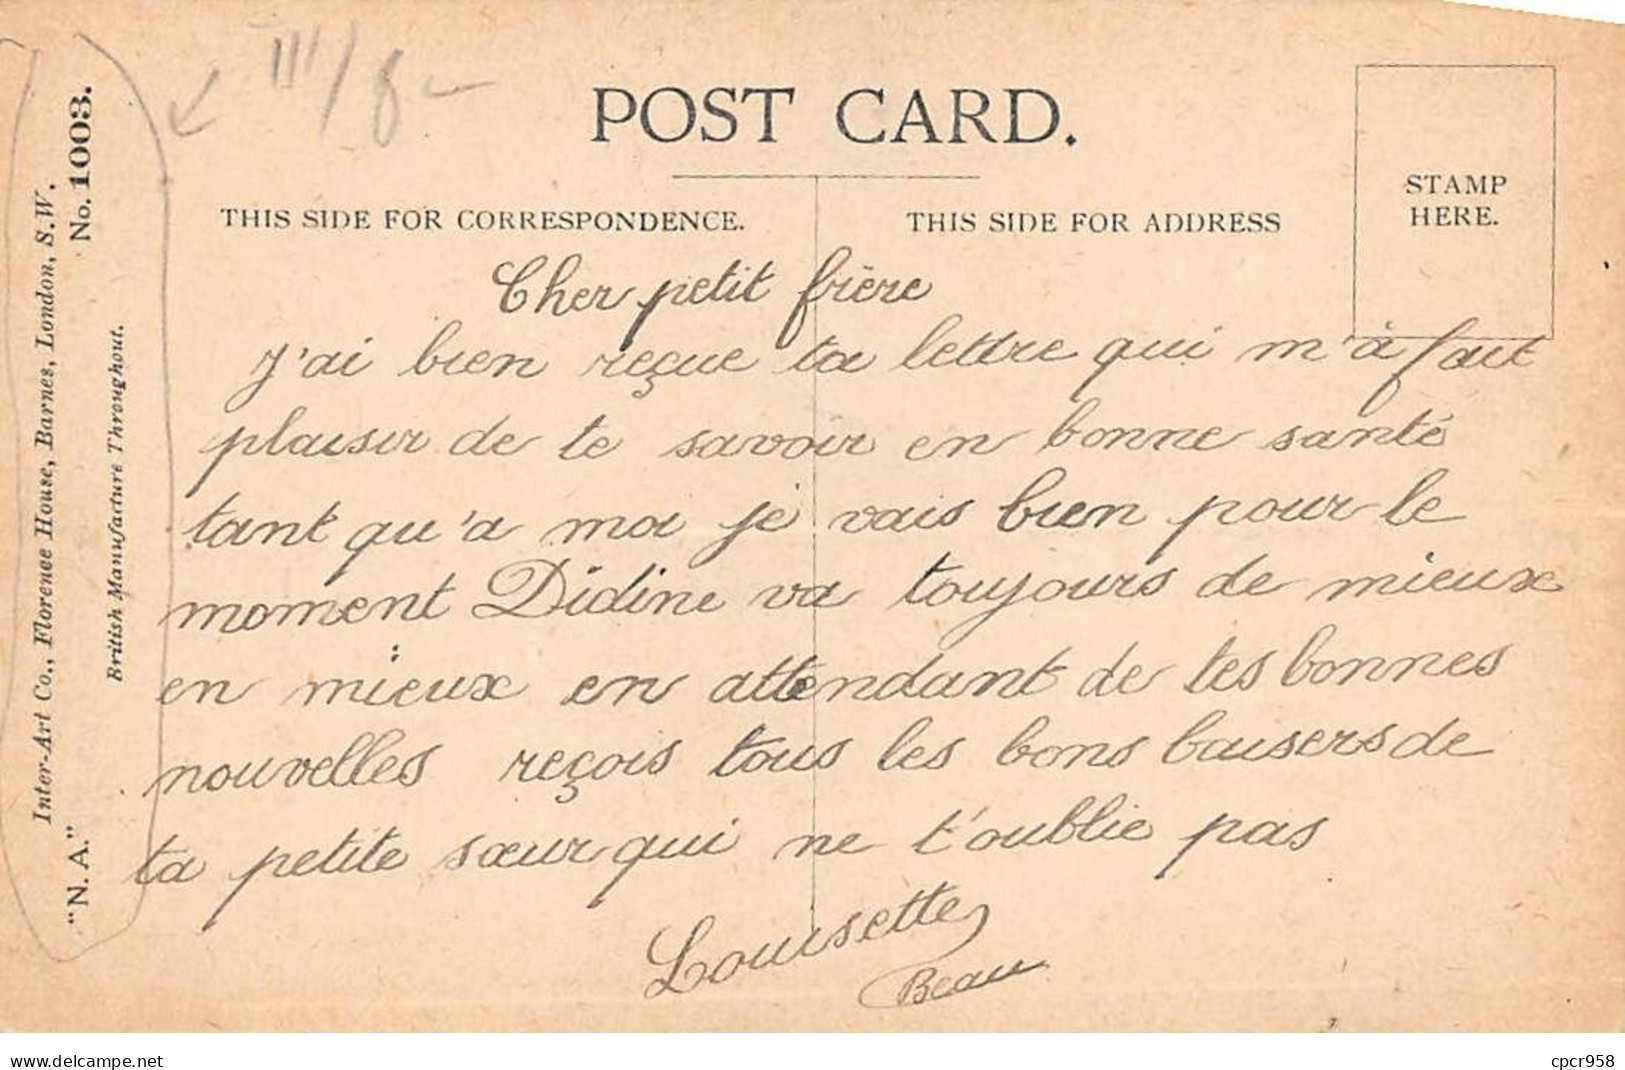 III/8
POST CARD.
THIS SIDE FOR CORRESPONDENCE.
THIS SIDE FOR ADDRESS
STAMP
HERE.
Inter-Art Co., Florence House, Barnes, London, S.W.
"N.A." No. 1003.
British Manufacture Throughout.
Cher petit frère
J'ai bien reçue ta lettre qui m'à fait
plaisir de te savoir en bonne santé
tant qu'a moi je vais bien pour le
moment Didine va toujours de mieux
en mieux en attendant de tes bonnes
nouvelles reçois tous les bons baisers de
ta petite sœur qui ne t'oublie pas
Louisette
Beau
delcampe.net
cpcr958